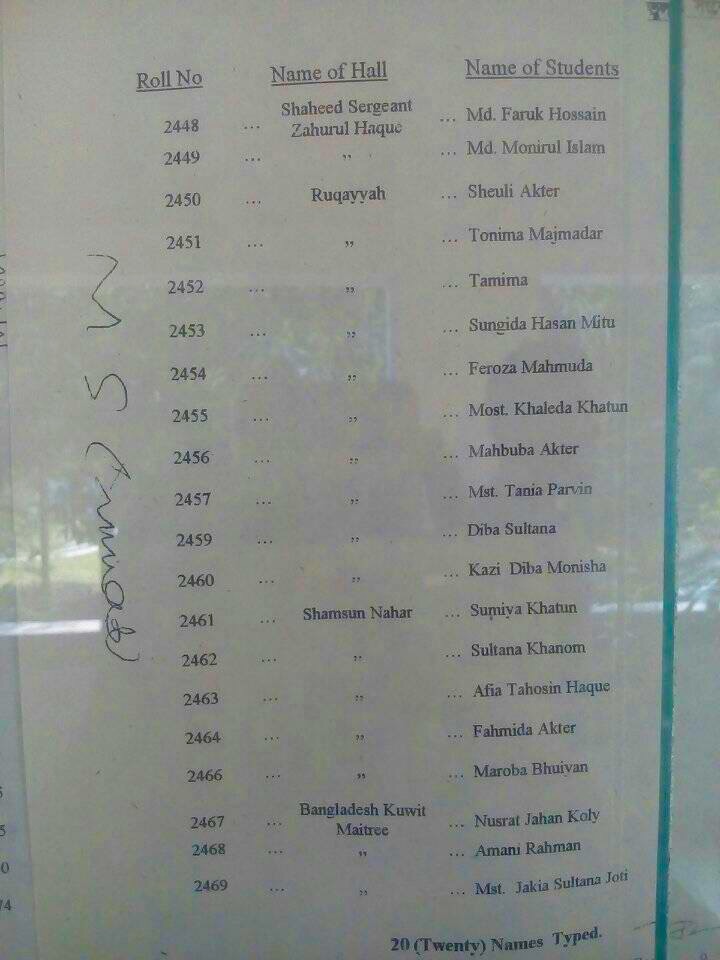 Roll No Name of Hall Name of Students
2448 ... Shaheed Sergeant Zahurul Haque ... Md. Faruk Hossain
2449 ... ,, ... Md. Monirul Islam
2450 ... Ruqayyah ... Sheuli Akter
2451 ... ,, ... Tonima Majmadar
2452 ... ,, ... Tamima
2453 ... ,, ... Sungida Hasan Mitu
2454 ... ,, ... Feroza Mahmuda
2455 ... ,, ... Most. Khaleda Khatun
2456 ... ,, ... Mahbuba Akter
2457 ... ,, ... Mst. Tania Parvin
2459 ... ,, ... Diba Sultana
2460 ... ,, ... Kazi Diba Monisha
2461 ... Shamsun Nahar ... Sumiya Khatun
2462 ... ,, ... Sultana Khanom
2463 ... ,, ... Afia Tahosin Haque
2464 ... ,, ... Fahmida Akter
2466 ... ,, ... Maroba Bhuiyan
2467 ... Bangladesh Kuwit Maitree ... Nusrat Jahan Koly
2468 ... ,, ... Amani Rahman
2469 ... ,, ... Mst. Jakia Sultana Joti
20 (Twenty) Names Typed.